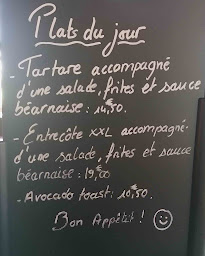 Plats du jour
- Tartare accompagné
d'une salade, frites et sauce
béarnaise : 14€50.
- Entrecôte XXL accompagné
d'une salade, frites et sauce
béarnaise : 19€00
- Avocado toast : 10€50.
Bon Appétit ! ☺